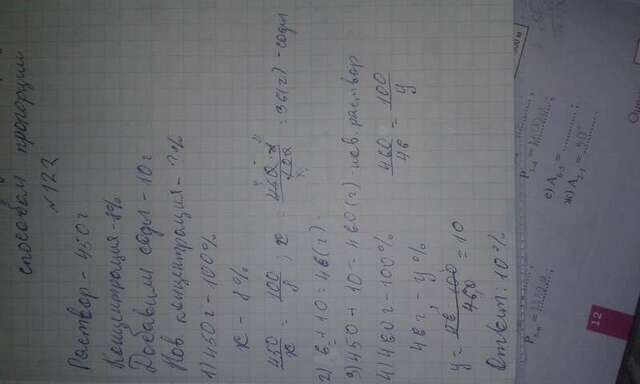 способом пропорции
№122
Раствор - 450 г
Концентрация - 8%
Добавили соды - 10 г
Нов. концентрация - ? %
1) 450 г - 100%
x - 8%
450/x = 100/8 ; x = 450 · 8/100 = 36 (г) - соды
2) 6 + 10 = 46 (г)
3) 450 + 10 = 460 (г) - нов. раствор
4) 460 г - 100%
46 г - y %
460/46 = 100/y
y = 46 · 100/460 = 10
Ответ: 10%
300 м
е) A
ж) A
12